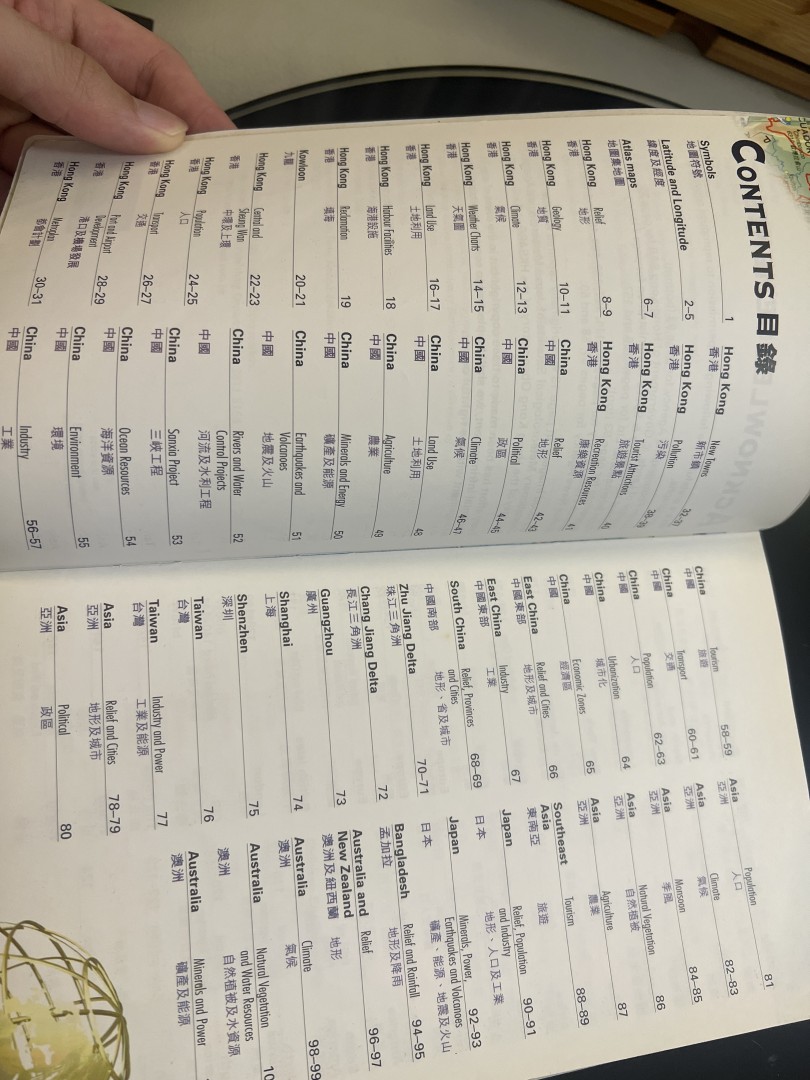 CONTENTS 目錄
Symbols 1
地圖符號
Latitude and Longitude 2–5
緯度及經度
Atlas maps 6–7
地圖集地圖
Hong Kong Relief 8–9
香港 地形
Hong Kong Geology 10–11
香港 地質
Hong Kong Climate 12–13
香港 氣候
Hong Kong Weather Charts 14–15
香港 天氣圖
Hong Kong Land Use 16–17
香港 土地利用
Hong Kong Harbour Facilities 18
香港 海港設施
Hong Kong Reclamation 19
香港 填海
Kowloon 20–21
九龍
Hong Kong Central and Sheung Wan 22–23
香港 中環及上環
Hong Kong Population 24–25
香港 人口
Hong Kong Transport 26–27
香港 交通
Hong Kong Port and Airport Development 28–29
香港 港口及機場發展
Hong Kong Metroplan 30–31
香港 都會計劃
Hong Kong New Towns
香港 新市鎮
Hong Kong Pollution
香港 污染
Hong Kong Tourist Attractions
香港 旅遊景點
Hong Kong Recreation Resources 41
香港 康樂資源
China Relief 42–43
中國 地形
China Political 44–45
中國 政區
China Climate 46–47
中國 氣候
China Land Use 48
中國 土地利用
China Agriculture 49
中國 農業
China Minerals and Energy 50
中國 礦產及能源
China Earthquakes and Volcanoes 51
中國 地震及火山
China Rivers and Water Control Projects 52
中國 河流及水利工程
China Sanxia Project 53
中國 三峽工程
China Ocean Resources 54
中國 海洋資源
China Environment 55
中國 環境
China Industry 56–57
中國 工業
China Tourism 58–59
中國 旅遊
China Transport 60–61
中國 交通
China Population 62–63
中國 人口
China Urbanization 64
中國 城市化
China Economic Zones 65
中國 經濟區
East China Relief and Cities 66
中國東部 地形及城市
East China Industry 67
中國東部 工業
South China Relief, Provinces and Cities 68–69
中國南部 地形、省及城市
Zhu Jiang Delta 70–71
珠江三角洲
Chang Jiang Delta 72
長江三角洲
Guangzhou 73
廣州
Shanghai 74
上海
Shenzhen 75
深圳
Taiwan 76
台灣
Taiwan Industry and Power 77
台灣 工業及能源
Asia Relief and Cities 78–79
亞洲 地形及城市
Asia Political 80
亞洲 政區
Asia Population 81
亞洲 人口
Asia Climate 82–83
亞洲 氣候
Asia Monsoon 84–85
亞洲 季風
Asia Natural Vegetation 86
亞洲 自然植被
Asia Agriculture 87
亞洲 農業
Southeast Asia Tourism 88–89
東南亞 旅遊
Japan Relief, Population and Industry 90–91
日本 地形、人口及工業
Japan Minerals, Power, Earthquakes and Volcanoes 92–93
日本 礦產、能源、地震及火山
Bangladesh Relief and Rainfall 94–95
孟加拉 地形及降雨
Australia and New Zealand Relief 96–97
澳洲及紐西蘭 地形
Australia Climate 98–99
澳洲 氣候
Australia Natural Vegetation and Water Resources
澳洲 自然植被及水資源
Australia Minerals and Power
澳洲 礦產及能源